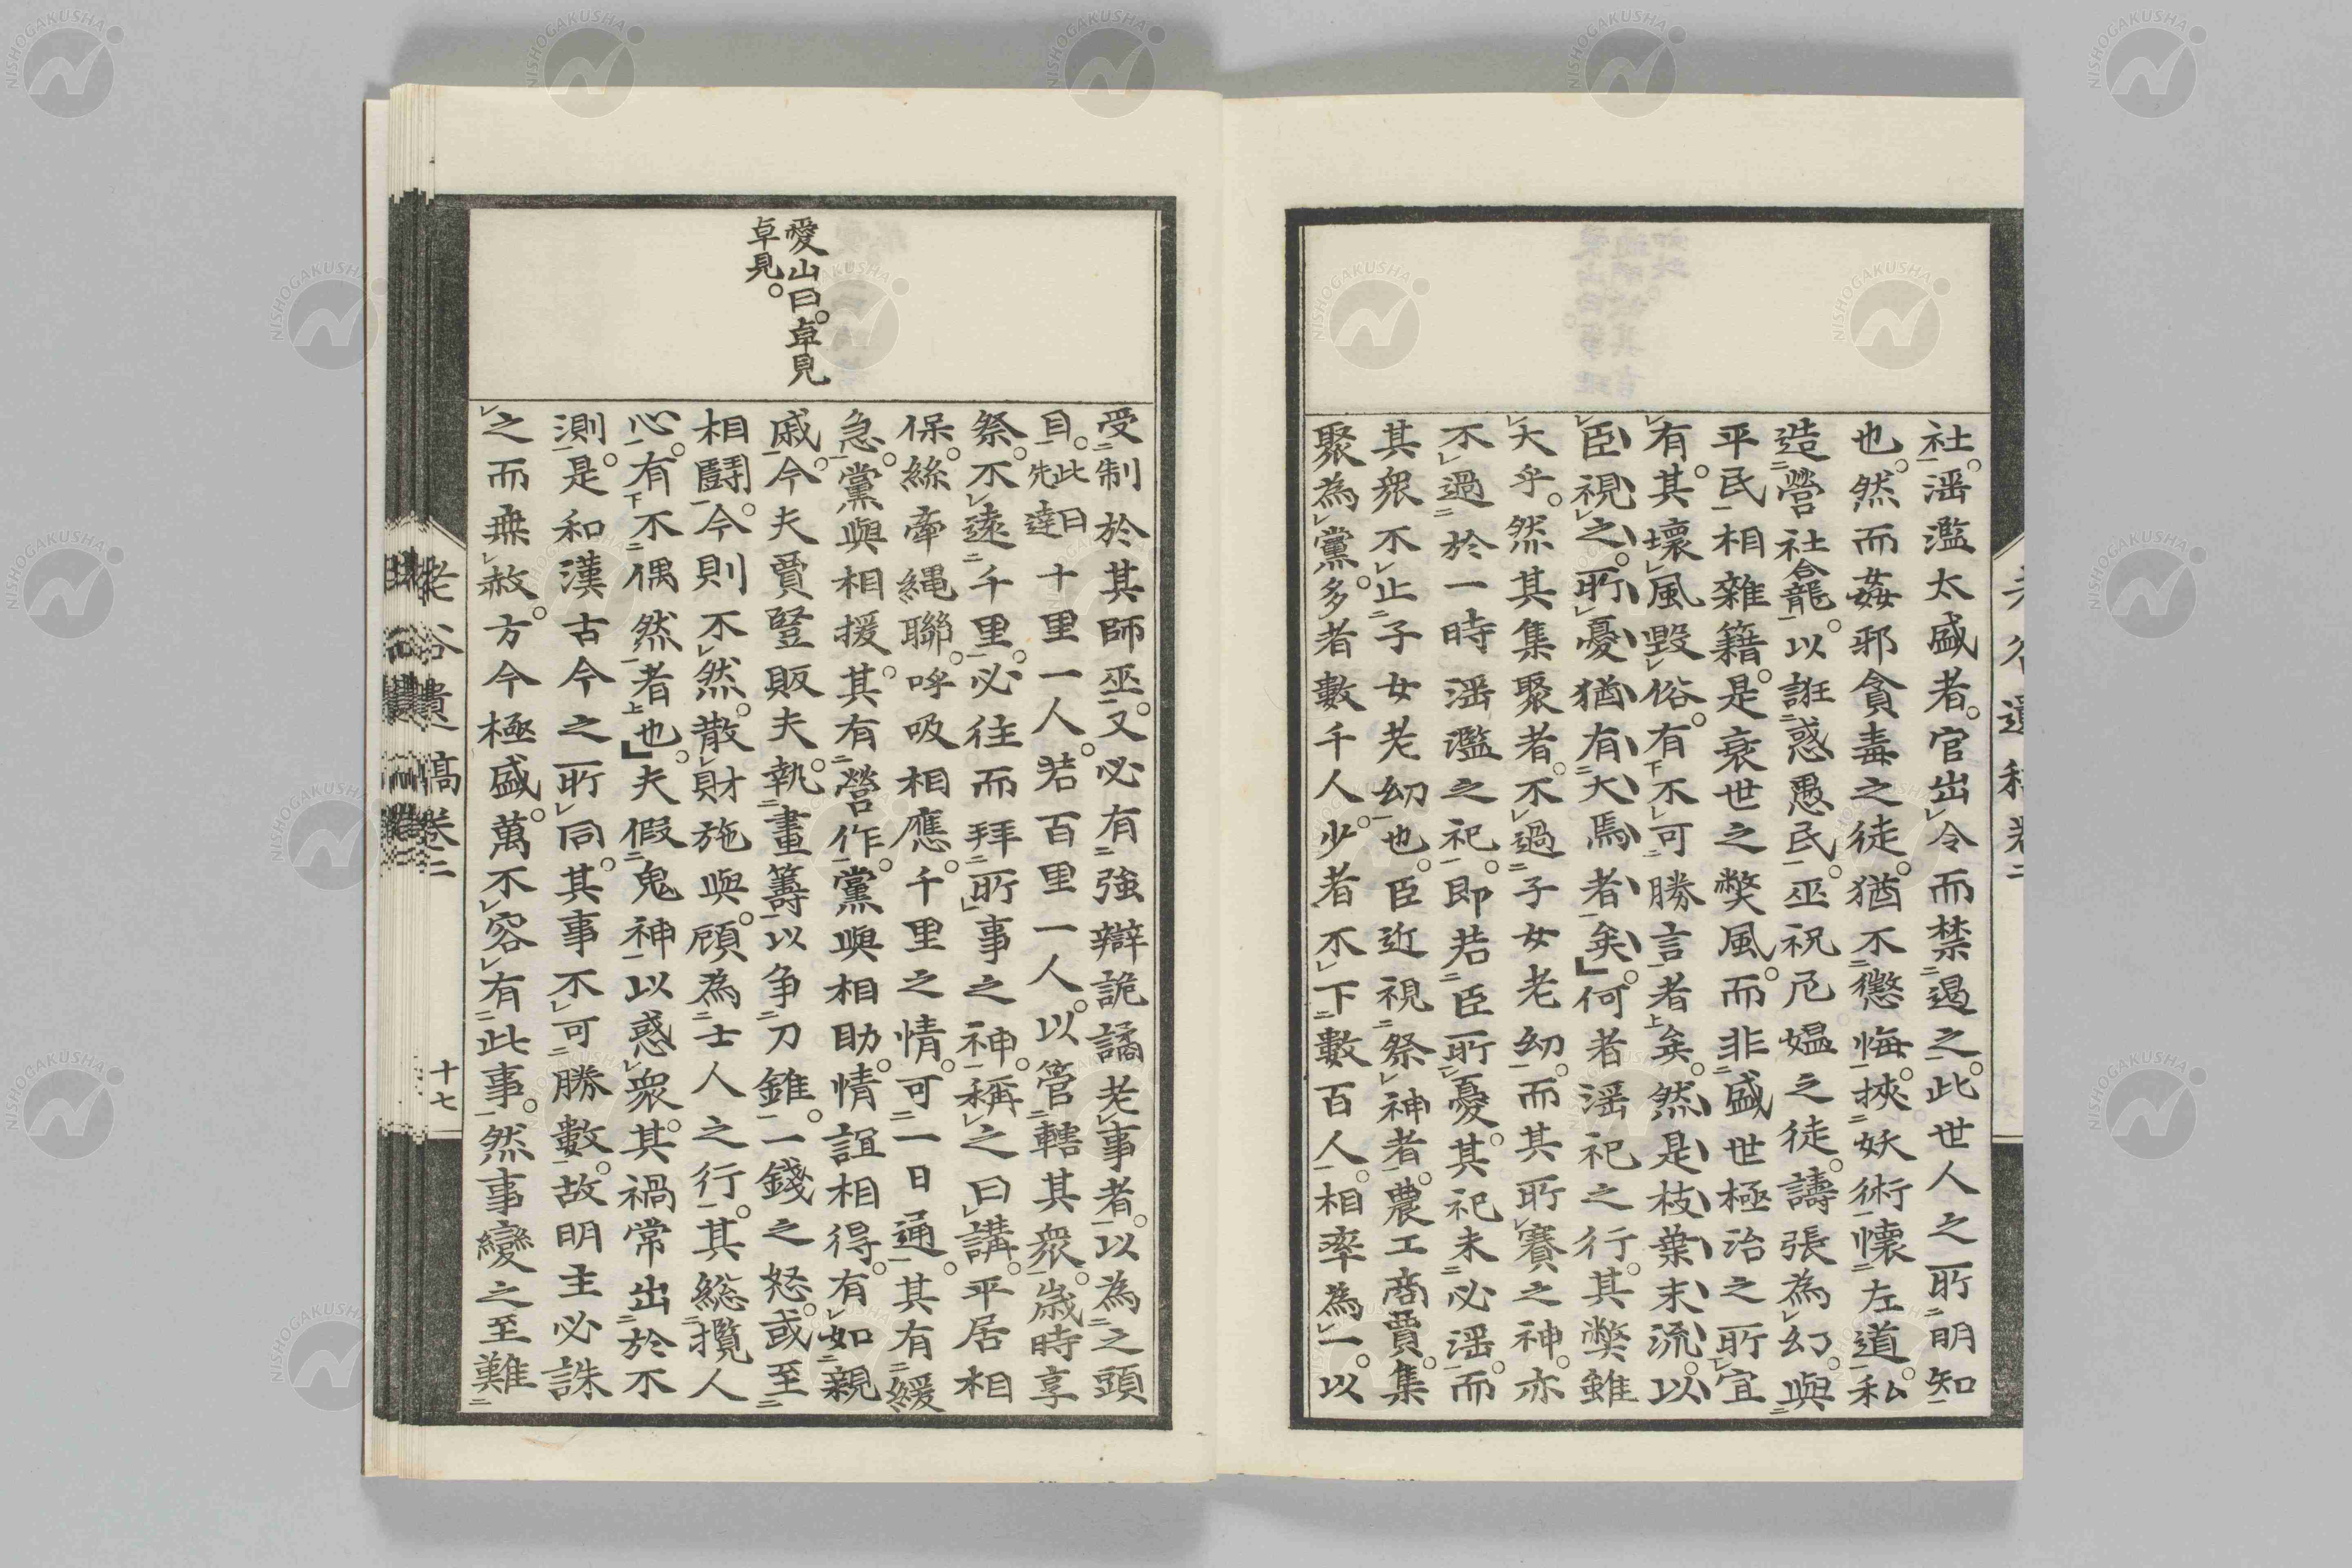 社淫濫太盛者。官出令而禁遏之。此世人之所明知
也。然而姦邪貪毒之徒。猶不懲悔。挾妖術。懷左道。私
造營社龕。以誑惑愚民。巫祝尼媼之徒。譸張為幻。與
平民相雜籍。是衰世之獘風。而非盛世極治之所宜
有。其壞風毀俗。有不可勝言者矣。然是枝葉末流。以
臣視之。所憂猶有大焉者矣』何者淫祀之行。其獘雖
大乎。然其集聚者。不過子女老幼。而其所賽之神。亦
不過於一時淫濫之祀。即若臣所憂。其祀未必淫。而
其衆不止子女老幼也。臣近視祭神者。農工商賈。集
聚為黨。多者數千人。少者不下數百人。相率為一。以
老谷遺稿卷二
愛山曰。卓見
卓見。
受制於其師巫。又必有強辯詭譎老事者。以為之頭
目。此曰先達十里一人。若百里一人。以管轄其衆。歲時享
祭。不遠千里。必往而拜所事之神。稱之曰講。平居相
保。絲牽縄聯。呼吸相應。千里之情。可一日通。其有緩
急。黨與相援。其有營作。黨與相助。情誼相得。有如親
戚。今夫賈豎販夫。執畫籌以争刀錐。一錢之怒。或至
相鬪。今則不然。散財施與。頋為士人之行。其総攬人
心。有不偶然者也。』夫假鬼神以惑衆。其禍常出於不
測。是和漢古今之所同。其事不可勝數。故明主必誅
之而無赦。方今極盛。萬不容有此事。然事變之至難
老谷遺稿卷二
十七
NISHOGAKUSHA